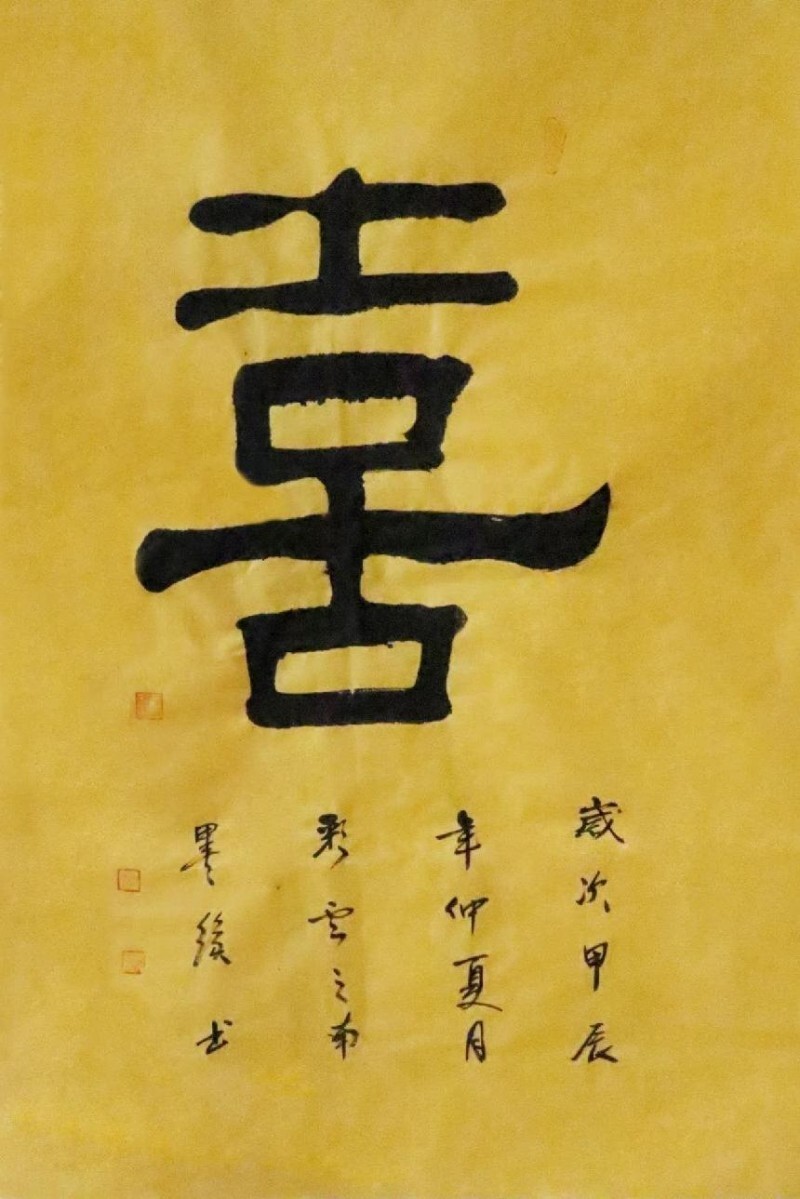 喜
歲次甲辰
年仲夏月
彩雲之南
墨緣书